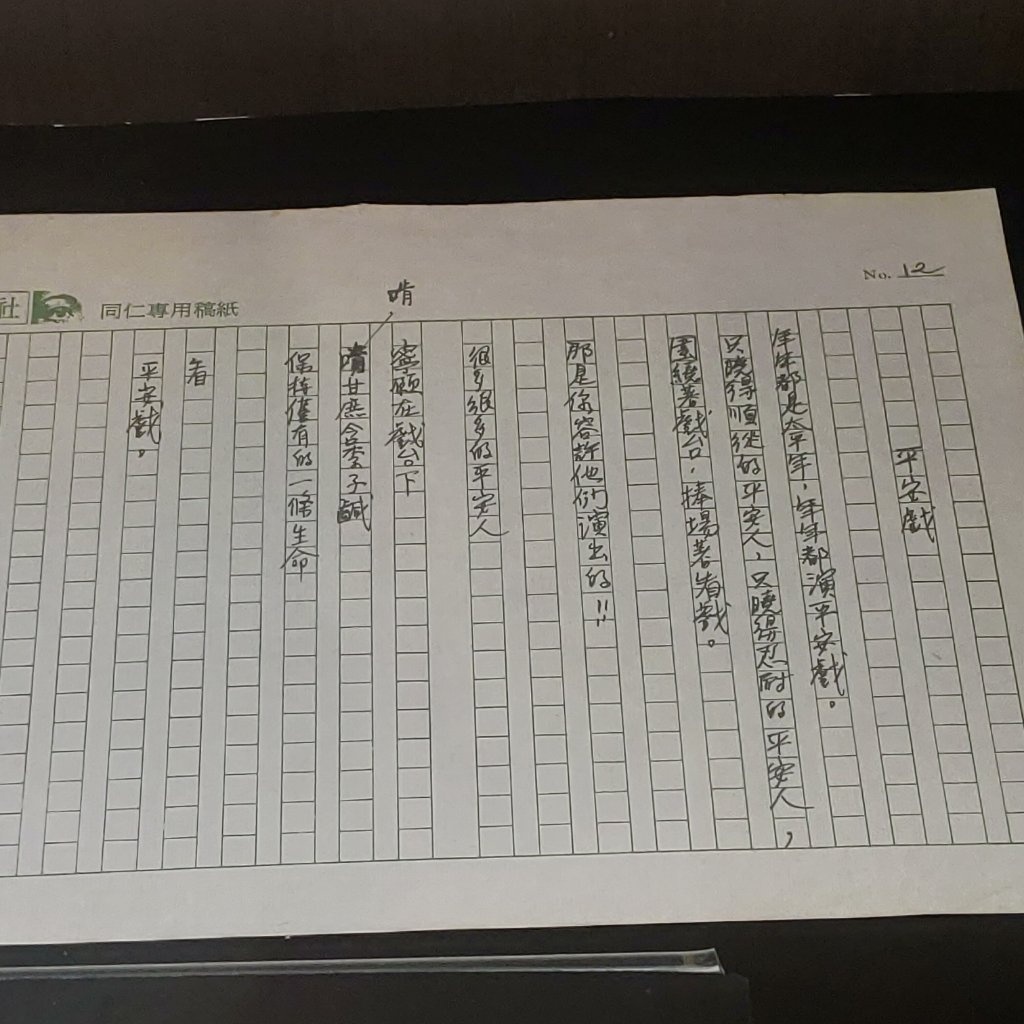 No. 12
社 同仁專用稿紙
平安戲
年年都是太平年，年年都演平安戲。
只曉得順從的平安人，只曉得忍耐的平安人，
圍繞著戲台，捧場著看戲。
那是你容許他們演出的!!
很多很多的平安人
寧願在戲台下
啃
嚼甘蔗含李子鹹
保持僅有的一條生命
看
平安戲。